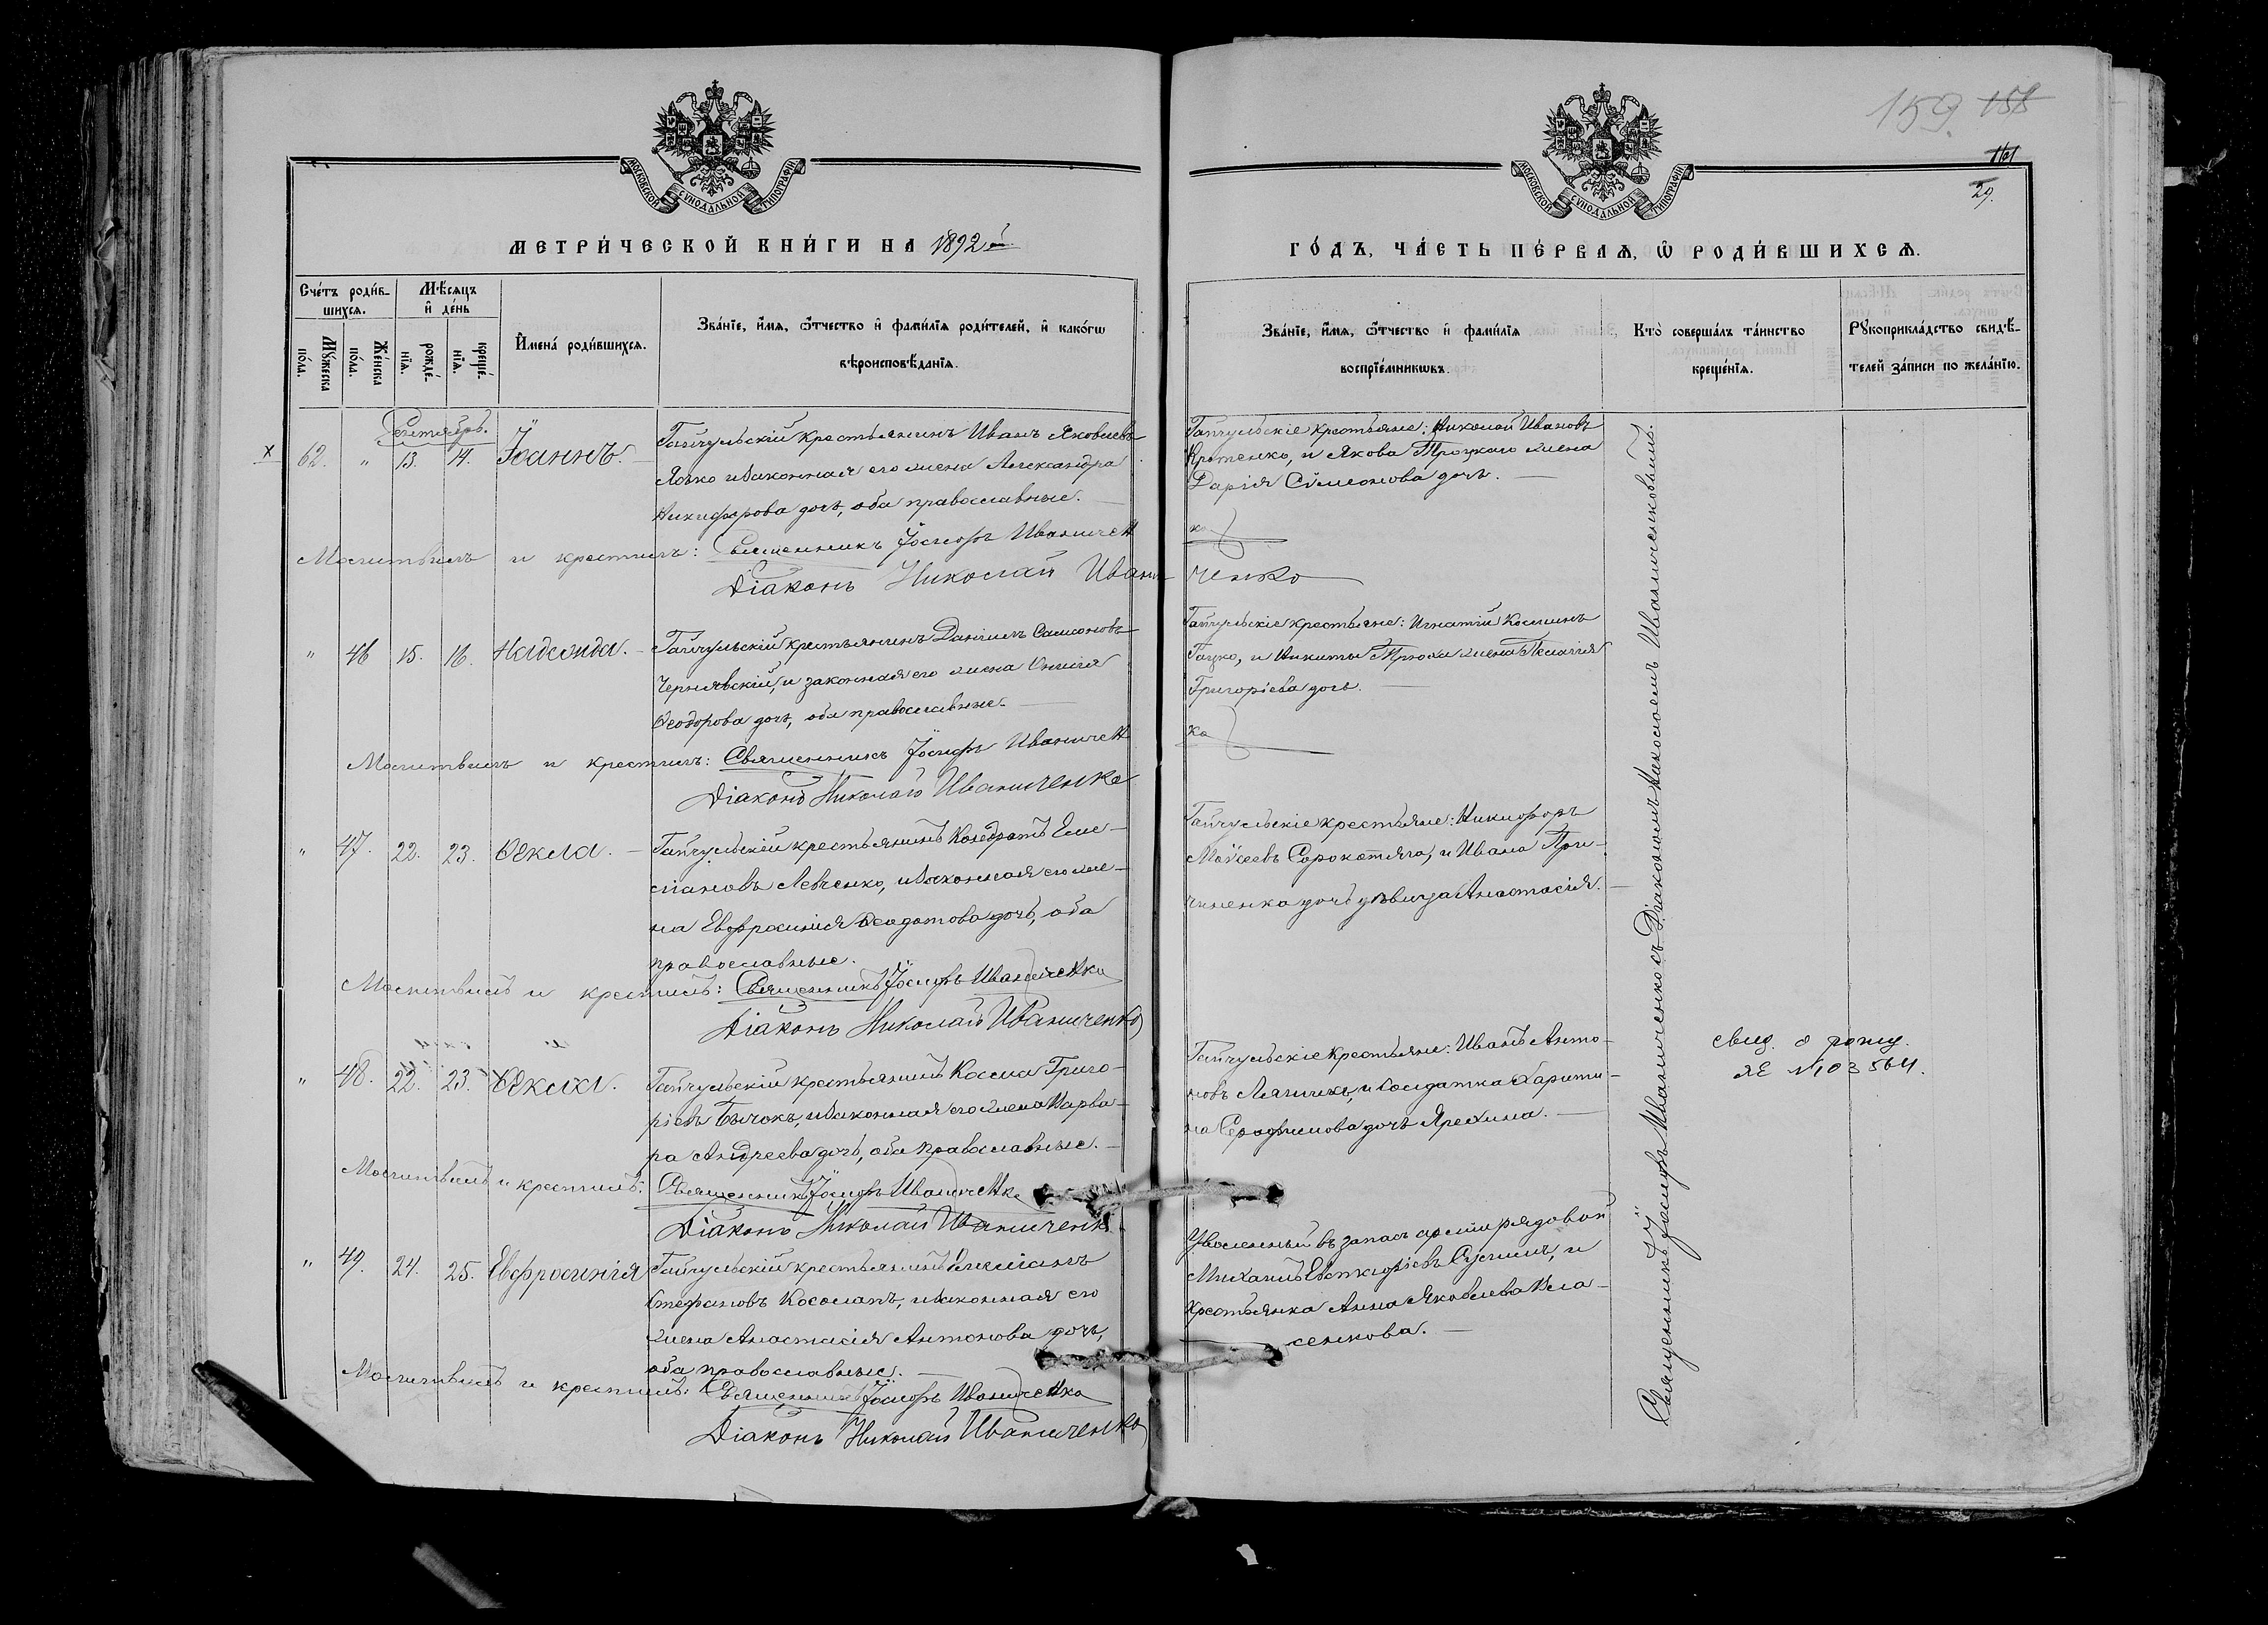 159. 158
161
29.
МОСКОВСКОЙ СѴНОДАЛЬНОЙ ТИПОГРАФІИ
МОСКОВСКОЙ СѴНОДАЛЬНОЙ ТИПОГРАФІИ
МЕТРИ́ЧЕСКОЙ КНИ́ГИ НА 1892 й
ГО́ДЪ, ЧА́СТЬ ПЕ́РВАЯ, Ѡ РОДИ́ВШИХСЯ.
Сче́тъ роди́в-
шихся.
Мѣ́сяцъ
и҆ де́нь
Мꙋ́жеска
по́ла.
Же́нска
по́ла.
рожде́-
нїя.
креще́-
нїя.
И҆мена́ роди́вшихся.
Зва́нїе, и҆́мя, ѻ҆́тчество и҆ фами́лїя роди́телей, и҆ како́гѡ
вѣроисповѣ́данїя.
Зва́нїе, и҆́мя, ѻ҆́тчество и҆ фами́лїя
воспрїе́мникѡвъ.
Кто̀ соверша́лъ та́инство
креще́нїя.
Рꙋкоприкла́дство свидѣ́-
телей за́писи по жела́нїю.
Сентябрь.
х 62. " 13. 14. Іоаннъ.
Гайчульскій крестьянинъ Иванъ Яковлевъ
и законная его жена Александра
Никифорова дочь, оба православные.
Молитвилъ и крестилъ: Священникъ Іосифъ Иваничен
Діаконъ Николай Ивани
Гайчульскіе крестьяне: Николай Ивановъ
и Якова Троцкаго жена
Дарія Сѵмеонова дочь.
ко
ченко
" 46 15. 16. Надежда.
Гайчульскій крестьянинъ Даніилъ Самсоновъ
Чернявскій, и законная его жена
Ѳеодорова дочь, оба православные.
Молитвилъ и крестилъ: Священникъ Іосифъ Иваничен
Діаконъ Николай Иваниченко
Гайчульскіе крестьяне: Игнатій Косминъ
Гацко, и Никиты жена Пелагія
Григоріева дочь.
ко
" 47. 22. 23. Ѳекла.
Гайчульскій крестьянинъ Кондратъ Еме-
ліановъ Левченко, и законная его же-
на Евфросинія Ѳеодотова дочь, оба
православные.
Молитвилъ и крестилъ: Священникъ Іосифъ Иваниченко
Діаконъ Николай Иваниченко
Гайчульскіе крестьяне: Никифоръ
Моѵсеевъ Сорокотяга, и Ивана При-
ченка дочь дѣвица Анастасія.
" 48. 22. 23. Ѳекла.
Гайчульскій крестьянинъ Косма Григо-
ріевъ Бычокъ, и законная его жена Варва-
ра Андреева дочь, оба православные.
Молитвилъ и крестилъ: Священникъ Іосифъ Иваниченко
Діаконъ Николай Иваниченко
Гайчульскіе крестьяне: Иванъ Анто-
новъ и солдатка Харити-
на Серафимова дочь
свид. о рожд.
ЯЕ № 103564.
" 49. 24. 25. Евфросинія
Гайчульскій крестьянинъ Емеліанъ
Стефановъ Косолапъ, и законная его
жена Анастасія Антонова дочь,
оба православные.
Молитвилъ и крестилъ: Священникъ Іосифъ Иваниченко
Діаконъ Николай Иваниченко
Уволенный въ запасъ арміи рядовой
Михаилъ Евстафіевъ и
крестьянка Анна Яковлева Вла-
сенкова.
Священникъ Іосифъ Иваниченко съ Діакономъ Николаемъ Иваниченковымъ.